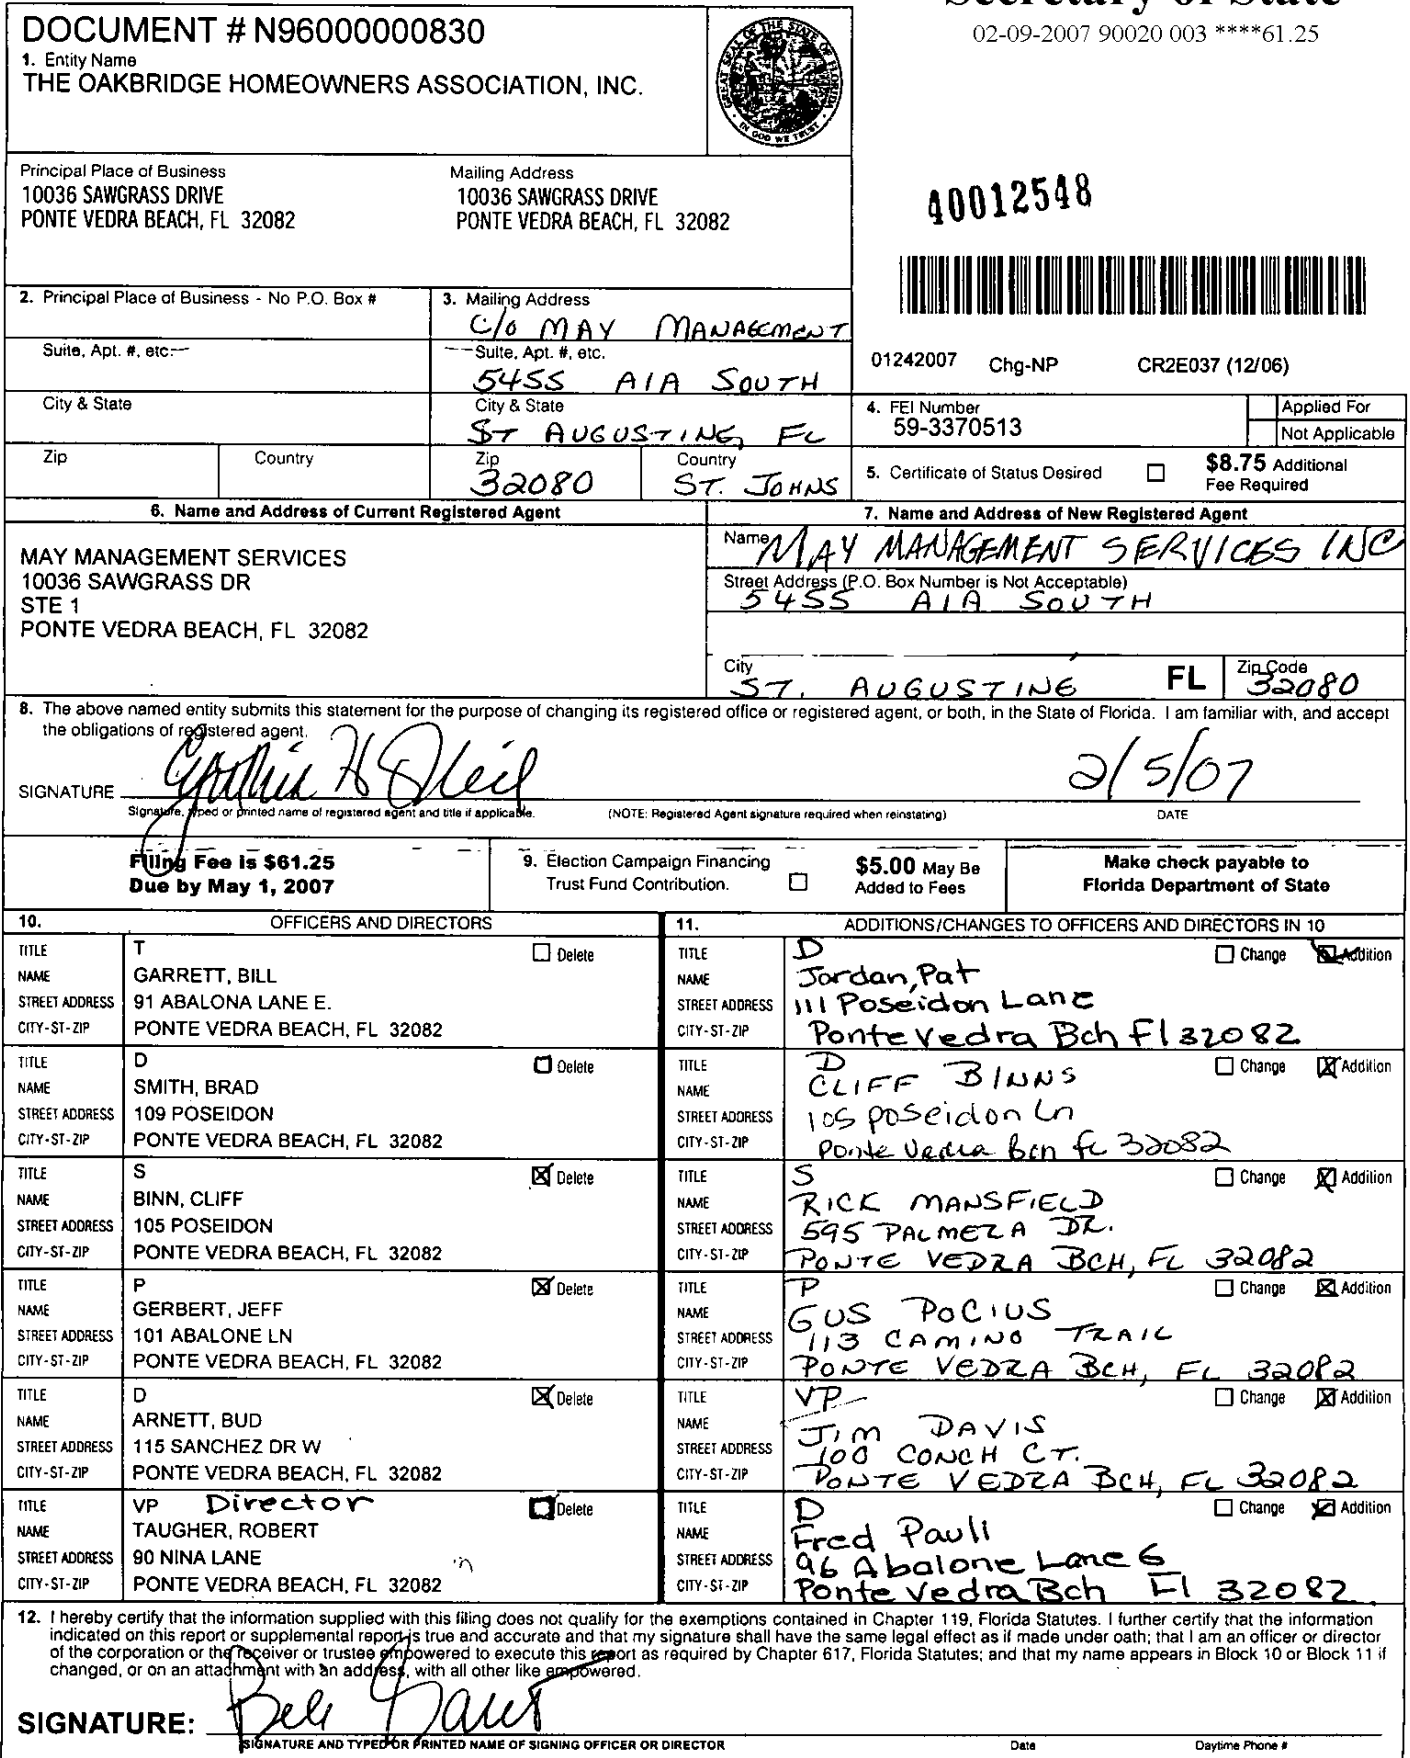 Secretary of State
02-09-2007 90020 003 ****61.25
DOCUMENT # N96000000830
1. Entity Name
THE OAKBRIDGE HOMEOWNERS ASSOCIATION, INC.
GREAT SEAL OF THE STATE OF FLORIDA
IN GOD WE TRUST
Principal Place of Business
10036 SAWGRASS DRIVE
PONTE VEDRA BEACH, FL 32082
Mailing Address
10036 SAWGRASS DRIVE
PONTE VEDRA BEACH, FL 32082
40012548
2. Principal Place of Business - No P.O. Box #
3. Mailing Address
C/o MAY MANAGEMENT
Suite, Apt. #, etc.
Suite, Apt. #, etc.
5455 A1A SOUTH
01242007 Chg-NP CR2E037 (12/06)
City & State
City & State
ST AUGUSTINE, FL
Zip
Country
Zip
32080
Country
ST. JOHNS
4. FEI Number
59-3370513
Applied For
Not Applicable
5. Certificate of Status Desired
$8.75 Additional
Fee Required
6. Name and Address of Current Registered Agent
MAY MANAGEMENT SERVICES
10036 SAWGRASS DR
STE 1
PONTE VEDRA BEACH, FL 32082
7. Name and Address of New Registered Agent
Name MAY MANAGEMENT SERVICES INC
Street Address (P.O. Box Number is Not Acceptable)
5455 A1A SOUTH
City
ST. AUGUSTINE
FL
Zip Code
32080
8. The above named entity submits this statement for the purpose of changing its registered office or registered agent, or both, in the State of Florida. I am familiar with, and accept
the obligations of registered agent.
SIGNATURE Cynthia H O'Neil
2/5/07
Signature, typed or printed name of registered agent and title if applicable.
(NOTE: Registered Agent signature required when reinstating)
DATE
Filing Fee is $61.25
Due by May 1, 2007
9. Election Campaign Financing
Trust Fund Contribution.
$5.00 May Be
Added to Fees
Make check payable to
Florida Department of State
10. OFFICERS AND DIRECTORS
TITLE T Delete
NAME GARRETT, BILL
STREET ADDRESS 91 ABALONA LANE E.
CITY-ST-ZIP PONTE VEDRA BEACH, FL 32082
TITLE D Delete
NAME SMITH, BRAD
STREET ADDRESS 109 POSEIDON
CITY-ST-ZIP PONTE VEDRA BEACH, FL 32082
TITLE S Delete
NAME BINN, CLIFF
STREET ADDRESS 105 POSEIDON
CITY-ST-ZIP PONTE VEDRA BEACH, FL 32082
TITLE P Delete
NAME GERBERT, JEFF
STREET ADDRESS 101 ABALONE LN
CITY-ST-ZIP PONTE VEDRA BEACH, FL 32082
TITLE D Delete
NAME ARNETT, BUD
STREET ADDRESS 115 SANCHEZ DR W
CITY-ST-ZIP PONTE VEDRA BEACH, FL 32082
TITLE VP Director Delete
NAME TAUGHER, ROBERT
STREET ADDRESS 90 NINA LANE
CITY-ST-ZIP PONTE VEDRA BEACH, FL 32082
11. ADDITIONS/CHANGES TO OFFICERS AND DIRECTORS IN 10
TITLE D Change Addition
NAME Jordan, Pat
STREET ADDRESS 111 Poseidon Lane
CITY-ST-ZIP Ponte Vedra Bch Fl 32082
TITLE D Change Addition
NAME CLIFF BINNS
STREET ADDRESS 105 poseidon Ln
CITY-ST-ZIP Ponte Vedra Bch fl 32082
TITLE S Change Addition
NAME RICK MANSFIELD
STREET ADDRESS 595 PALMERA DR.
CITY-ST-ZIP PONTE VEDRA BCH, FL 32082
TITLE P Change Addition
NAME GUS POCIUS
STREET ADDRESS 113 CAMINO TRAIL
CITY-ST-ZIP PONTE VEDRA BCH, FL 32082
TITLE VP Change Addition
NAME JIM DAVIS
STREET ADDRESS 100 CONCH CT.
CITY-ST-ZIP PONTE VEDRA BCH, FL 32082
TITLE D Change Addition
NAME Fred Pauli
STREET ADDRESS 96 Abalone Lane
CITY-ST-ZIP Ponte Vedra Bch Fl 32082
12. I hereby certify that the information supplied with this filing does not qualify for the exemptions contained in Chapter 119, Florida Statutes. I further certify that the information
indicated on this report or supplemental report is true and accurate and that my signature shall have the same legal effect as if made under oath; that I am an officer or director
of the corporation or the receiver or trustee empowered to execute this report as required by Chapter 617, Florida Statutes; and that my name appears in Block 10 or Block 11 if
changed, or on an attachment with an address, with all other like empowered.
SIGNATURE:
SIGNATURE AND TYPED OR PRINTED NAME OF SIGNING OFFICER OR DIRECTOR
Date
Daytime Phone #